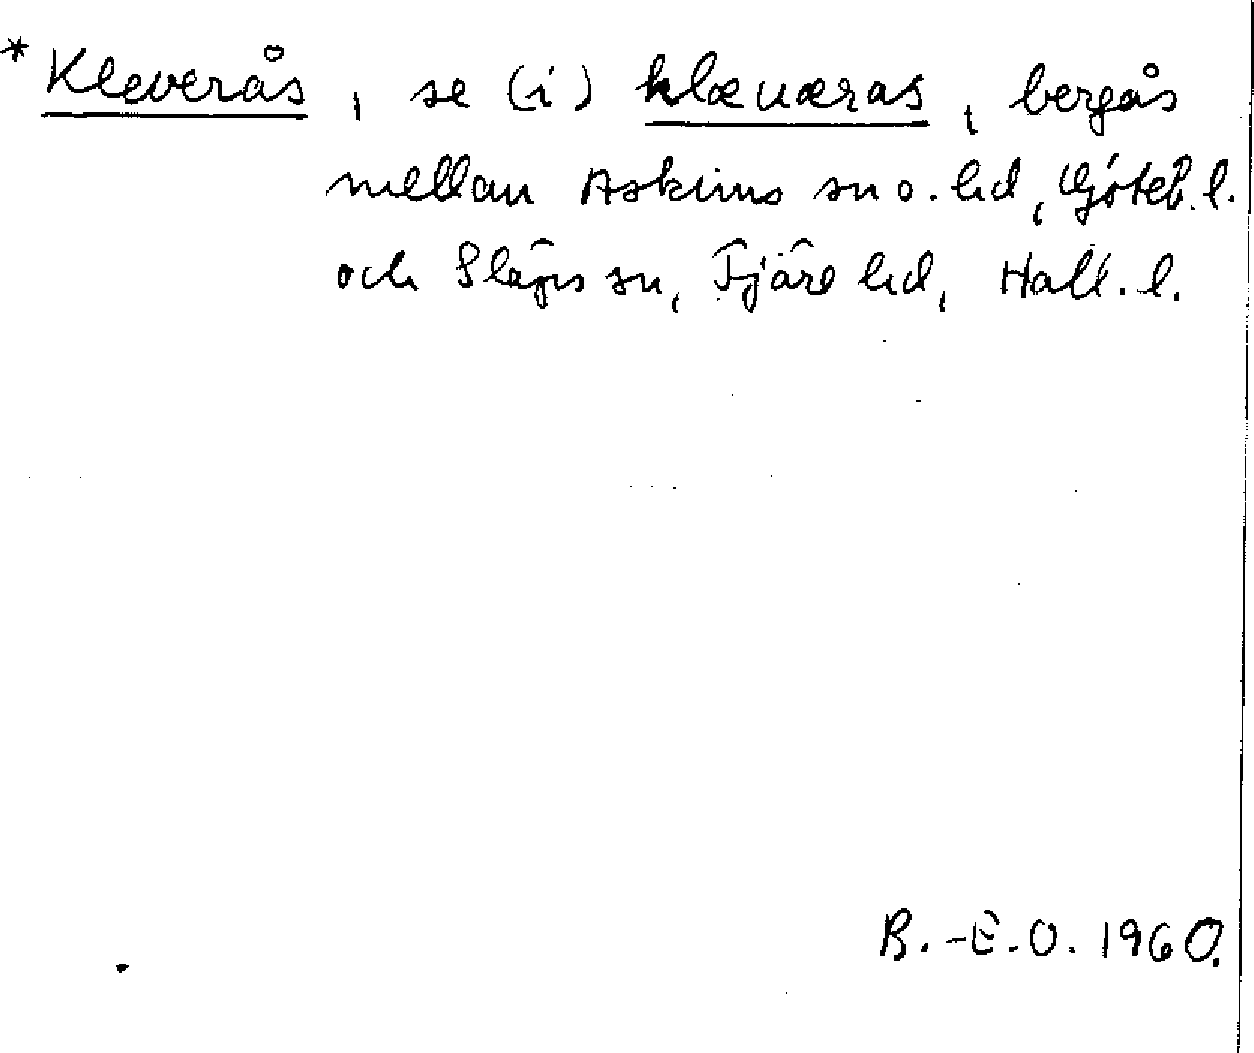 *Kleverås, se (i) klæuæras, bergås
mellan Askims sn o. hd, Göteb. l.
och Släps sn, Fjäre hd, Hall. l.
B.-E.O. 1960.